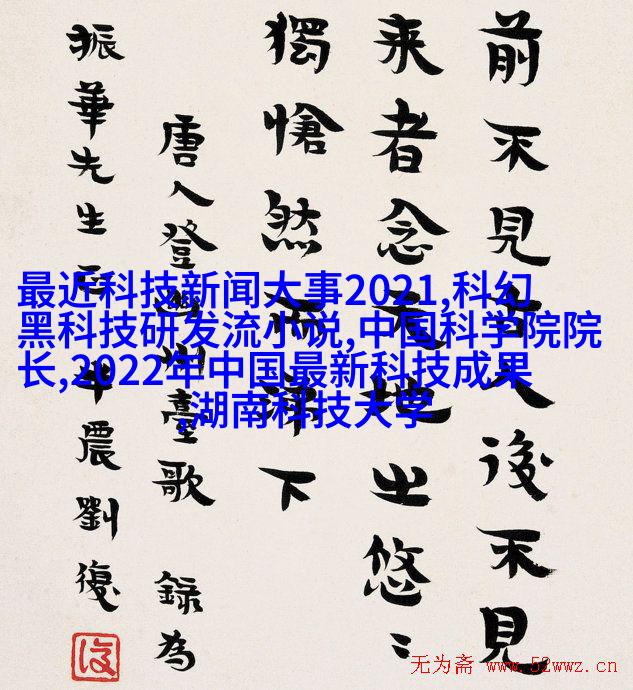 前不見古人後不見
来者念天地之悠〻
獨愴然而涕下
唐人登幽州臺歌 錄為
振華先生正 半農劉復
最近科技新闻大事2021,科幻
黑科技研发流小说,中国科学院院
长,2022年中国最新科技成果
,湖南科技大学
无为斋 www.52wwz.cn